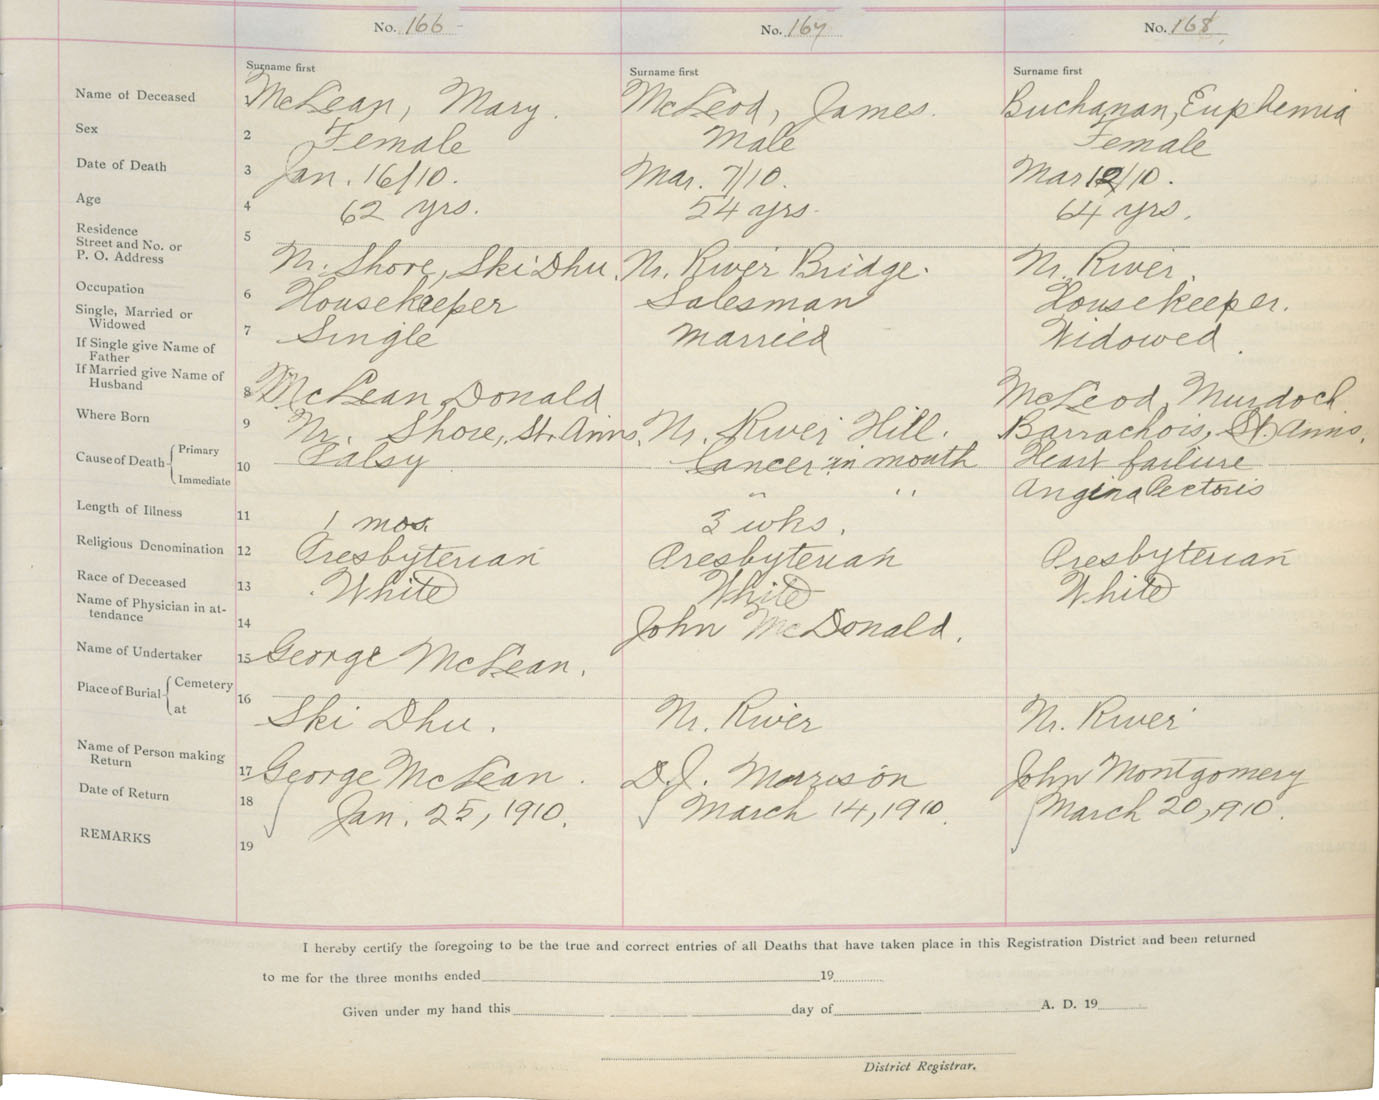 No. 166 No. 167 No. 168
Surname first Surname first Surname first
Name of Deceased 1 McLean, Mary. McLeod, James. Buchanan, Euphemia
Sex 2 Female Male Female
Date of Death 3 Jan. 16/10. Mar. 7/10. Mar 12/10.
Age 4 62 yrs. 54 yrs. 64 yrs.
Residence 5
Street and No. or
P. O. Address Nr. Shore, Ski Dhu. Nr. River Bridge. Nr. River.
Occupation 6 Housekeeper Salesman Housekeeper.
Single, Married or
Widowed 7 Single Married Widowed.
If Single give Name of
Father
If Married give Name of
Husband 8 McLean, Donald McLeod, Murdoch
Where Born 9 Nr. Shore, St. Anns. Nr. River Hill. Barrachois, St. Anns.
Cause of Death Primary 10 Palsy Cancer in mouth Heart failure
Immediate " " Angina Pectoris
Length of Illness 11 1 mos. 3 wks.
Religious Denomination 12 Presbyterian Presbyterian Presbyterian
Race of Deceased 13 White White White
Name of Physician in at-
tendance 14 John McDonald.
Name of Undertaker 15 George McLean.
Place of Burial Cemetery 16
at Ski Dhu. Nr. River Nr. River
Name of Person making
Return 17 George McLean. D. J. Morrison John Montgomery
Date of Return 18 Jan. 25, 1910. March 14, 1910. March 20, 1910.
REMARKS 19
I hereby certify the foregoing to be the true and correct entries of all Deaths that have taken place in this Registration District and been returned
to me for the three months ended 19
Given under my hand this day of A. D. 19
District Registrar.